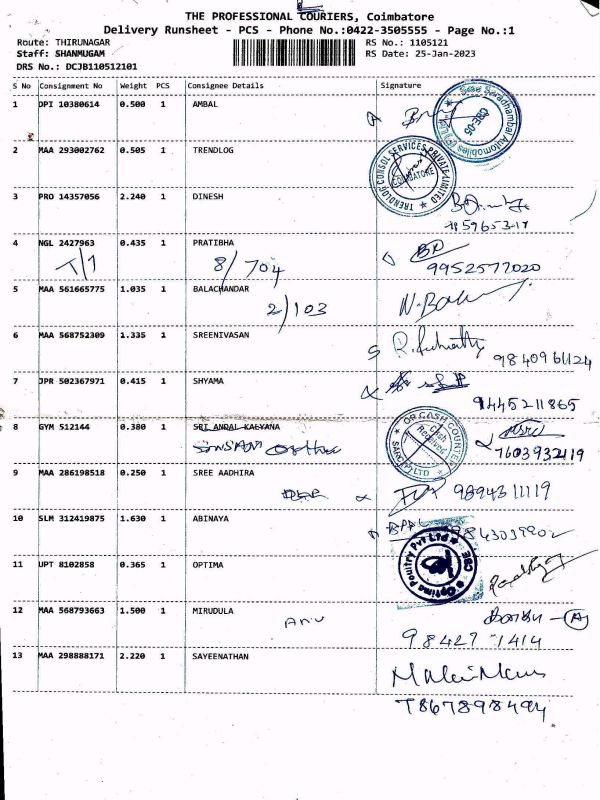 THE PROFESSIONAL COURIERS, Coimbatore
Delivery Runsheet - PCS - Phone No.:0422-3505555 - Page No.:1
Route: THIRUNAGAR RS No.: 1105121
Staff: SHANMUGAM RS Date: 25-Jan-2023
DRS No.: DCJB110512101
S No Consignment No Weight PCS Consignee Details Signature
1 DPI 10380614 0.500 1 AMBAL
2 MAA 293002762 0.505 1 TRENDLOG
TRENDLOG CONSOL SERVICES PRIVATE LIMITED
COIMBATORE
3 PRO 14357056 2.240 1 DINESH
4 NGL 2427963 0.435 1 PRATIBHA
T/1 8/704 9952577020
5 MAA 561665775 1.035 1 BALACHANDAR
2/103
6 MAA 568752309 1.335 1 SREENIVASAN
9840961124
7 JPR 502367971 0.415 1 SHYAMA
9445211865
8 GYM 512144 0.380 1 SRI ANDAL KALYANA
7603932119
9 MAA 286198518 0.250 1 SREE AADHIRA
9894311119
10 SLM 312419875 1.630 1 ABINAYA
9843039902
11 UPT 8102858 0.365 1 OPTIMA
Optima Poultry Pvt Ltd CBE
12 MAA 568793663 1.500 1 MIRUDULA
Anu
98427 1414
13 MAA 298888171 2.220 1 SAYEENATHAN
T867898494